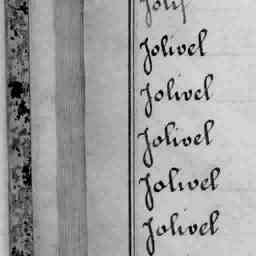 Joly
Jolivel
Jolivel
Jolivel
Jolivel
Jolivel